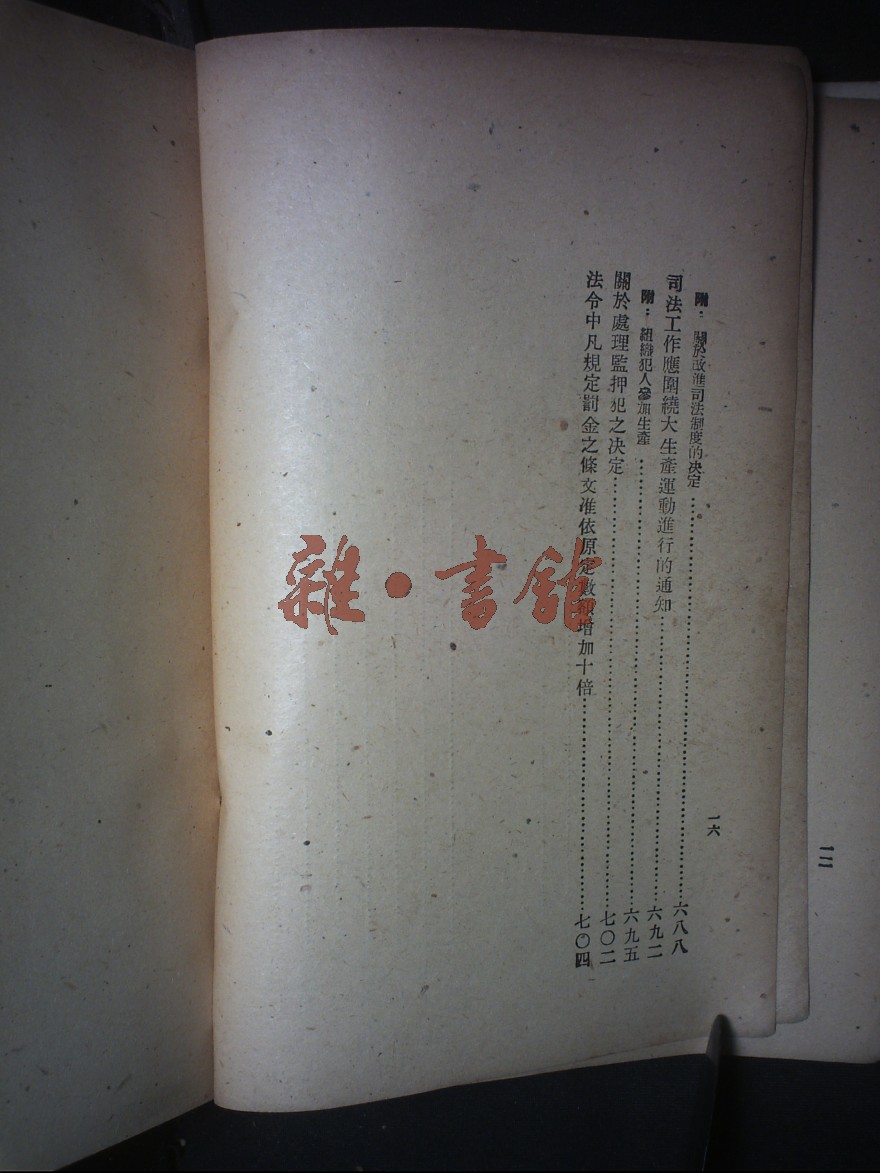 附：關於改進司法制度的决定……六八八
司法工作應圍繞大生產運動進行的通知……六九二
附：組織犯人參加生產……六九五
關於處理監押犯之决定……七〇二
法令中凡規定罰金之條文准依原定數額增加十倍……七〇四
一六
雜·書館